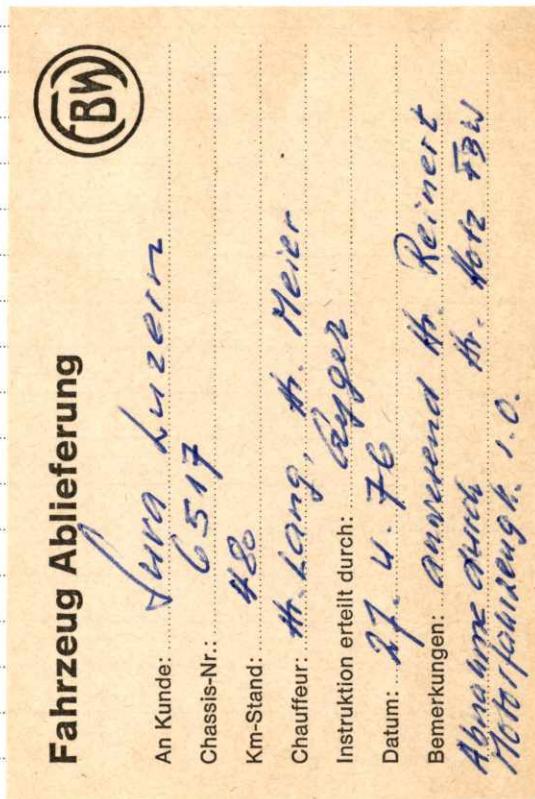 Fahrzeug Ablieferung
FBW
An Kunde: Sura Luzern
Chassis-Nr.: 6517
Km-Stand: 480
Chauffeur: Hr. Lang, Hr. Meier
Instruktion erteilt durch: Gyger
Datum: 27. 4. 76
Bemerkungen: anwesend Hr. Reinert
Abnahme durch Hr. Hotz FBW
Motorfahrzeugk. i.O.